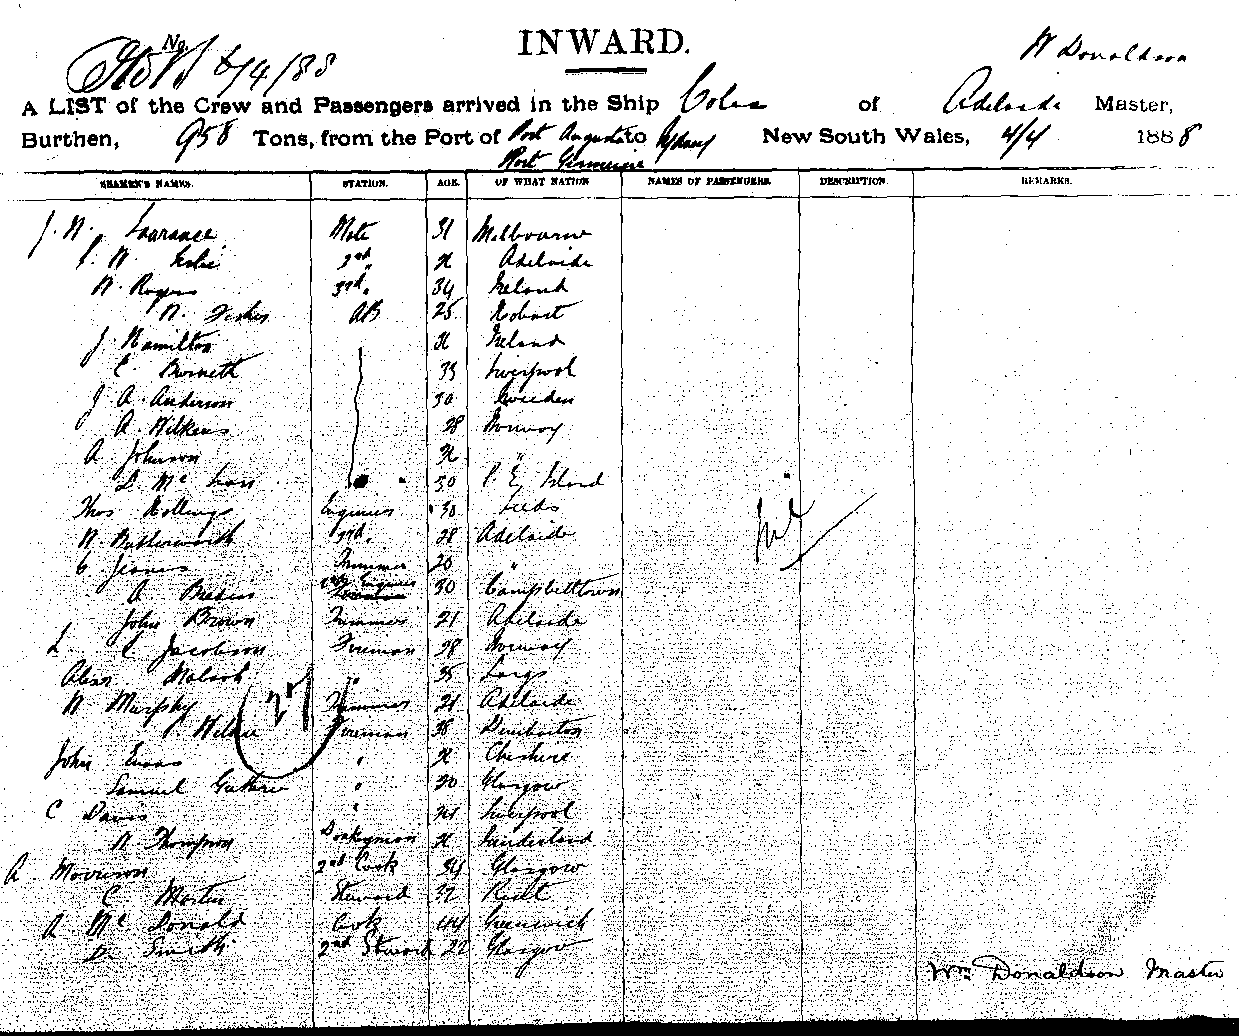 INWARD.
No. 6/4/88
W Donaldson
A LIST of the Crew and Passengers arrived in the Ship Coles of Adelaide Master,
Burthen, 958 Tons, from the Port of Port Augusta to Sydney New South Wales, 4/4 1888
Port Germein
SEAMEN'S NAMES. STATION. AGE. OF WHAT NATION NAMES OF PASSENGERS. DESCRIPTION. REMARKS.
J. W. Lawrance Mate 31 Melbourne
2nd " Adelaide
W. Rogers 3rd " 34 Ireland
W. Fisher AB 25 Hobart
J. Hamilton Ireland
C Burnett 33 Liverpool
J A Anderson 30 Sweden
A Wilkens 28 Norway
A Johnson "
D Mc " 30 P. E. Island
Thos Hollings Engineer 30 Leeds
W. Butterworth 2nd " 28 Adelaide
C Trimmer 20 "
A Engineer 30 Campbelltown
John Brown Trimmer 21 Adelaide
L C Jacobson Fireman 28 Norway
Alexr " 35 Largs
W Murphy Trimmer 21 Adelaide
Wilkie Fireman 38 Dumbarton
27
John Evans " Cheshire
Samuel Guthrie " 30 Glasgow
C Davis " Liverpool
W Thompson Donkeyman Sunderland
A. Morrison 2nd Cook 34 Glasgow
C Martin Steward 32
A McDonald Cook 44 Greenwich
Smith 2nd Steward 22 Glasgow
Nil
Wm Donaldson Master